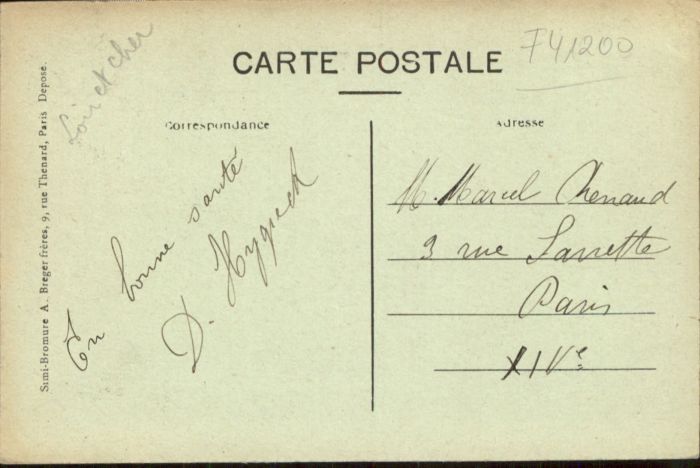 Loir et cher
F41200
CARTE POSTALE
Correspondance
Adresse
En bonne santé
D.
M. Marcel Renaud
3 rue
Paris
XIVe
Simi-Bromure A. Breger frères, 9, rue Thenard, Paris Déposé.